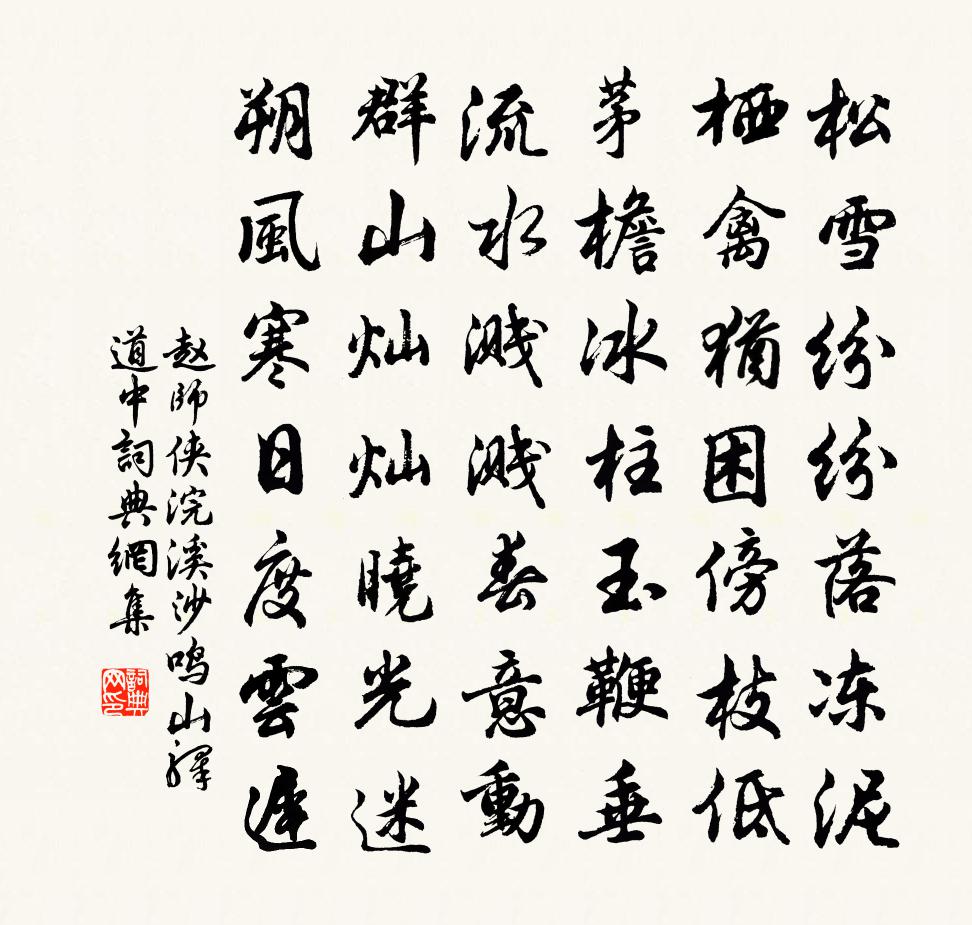 松雪纷纷落冻泥
栖禽猶困傍枝低
茅檐冰柱玉鞭垂
流水溅溅春意動
群山灿灿曉光迷
朔風寒日度雲遲
赵師侠浣溪沙鸣山驛
道中詞典網集
詞典
网印